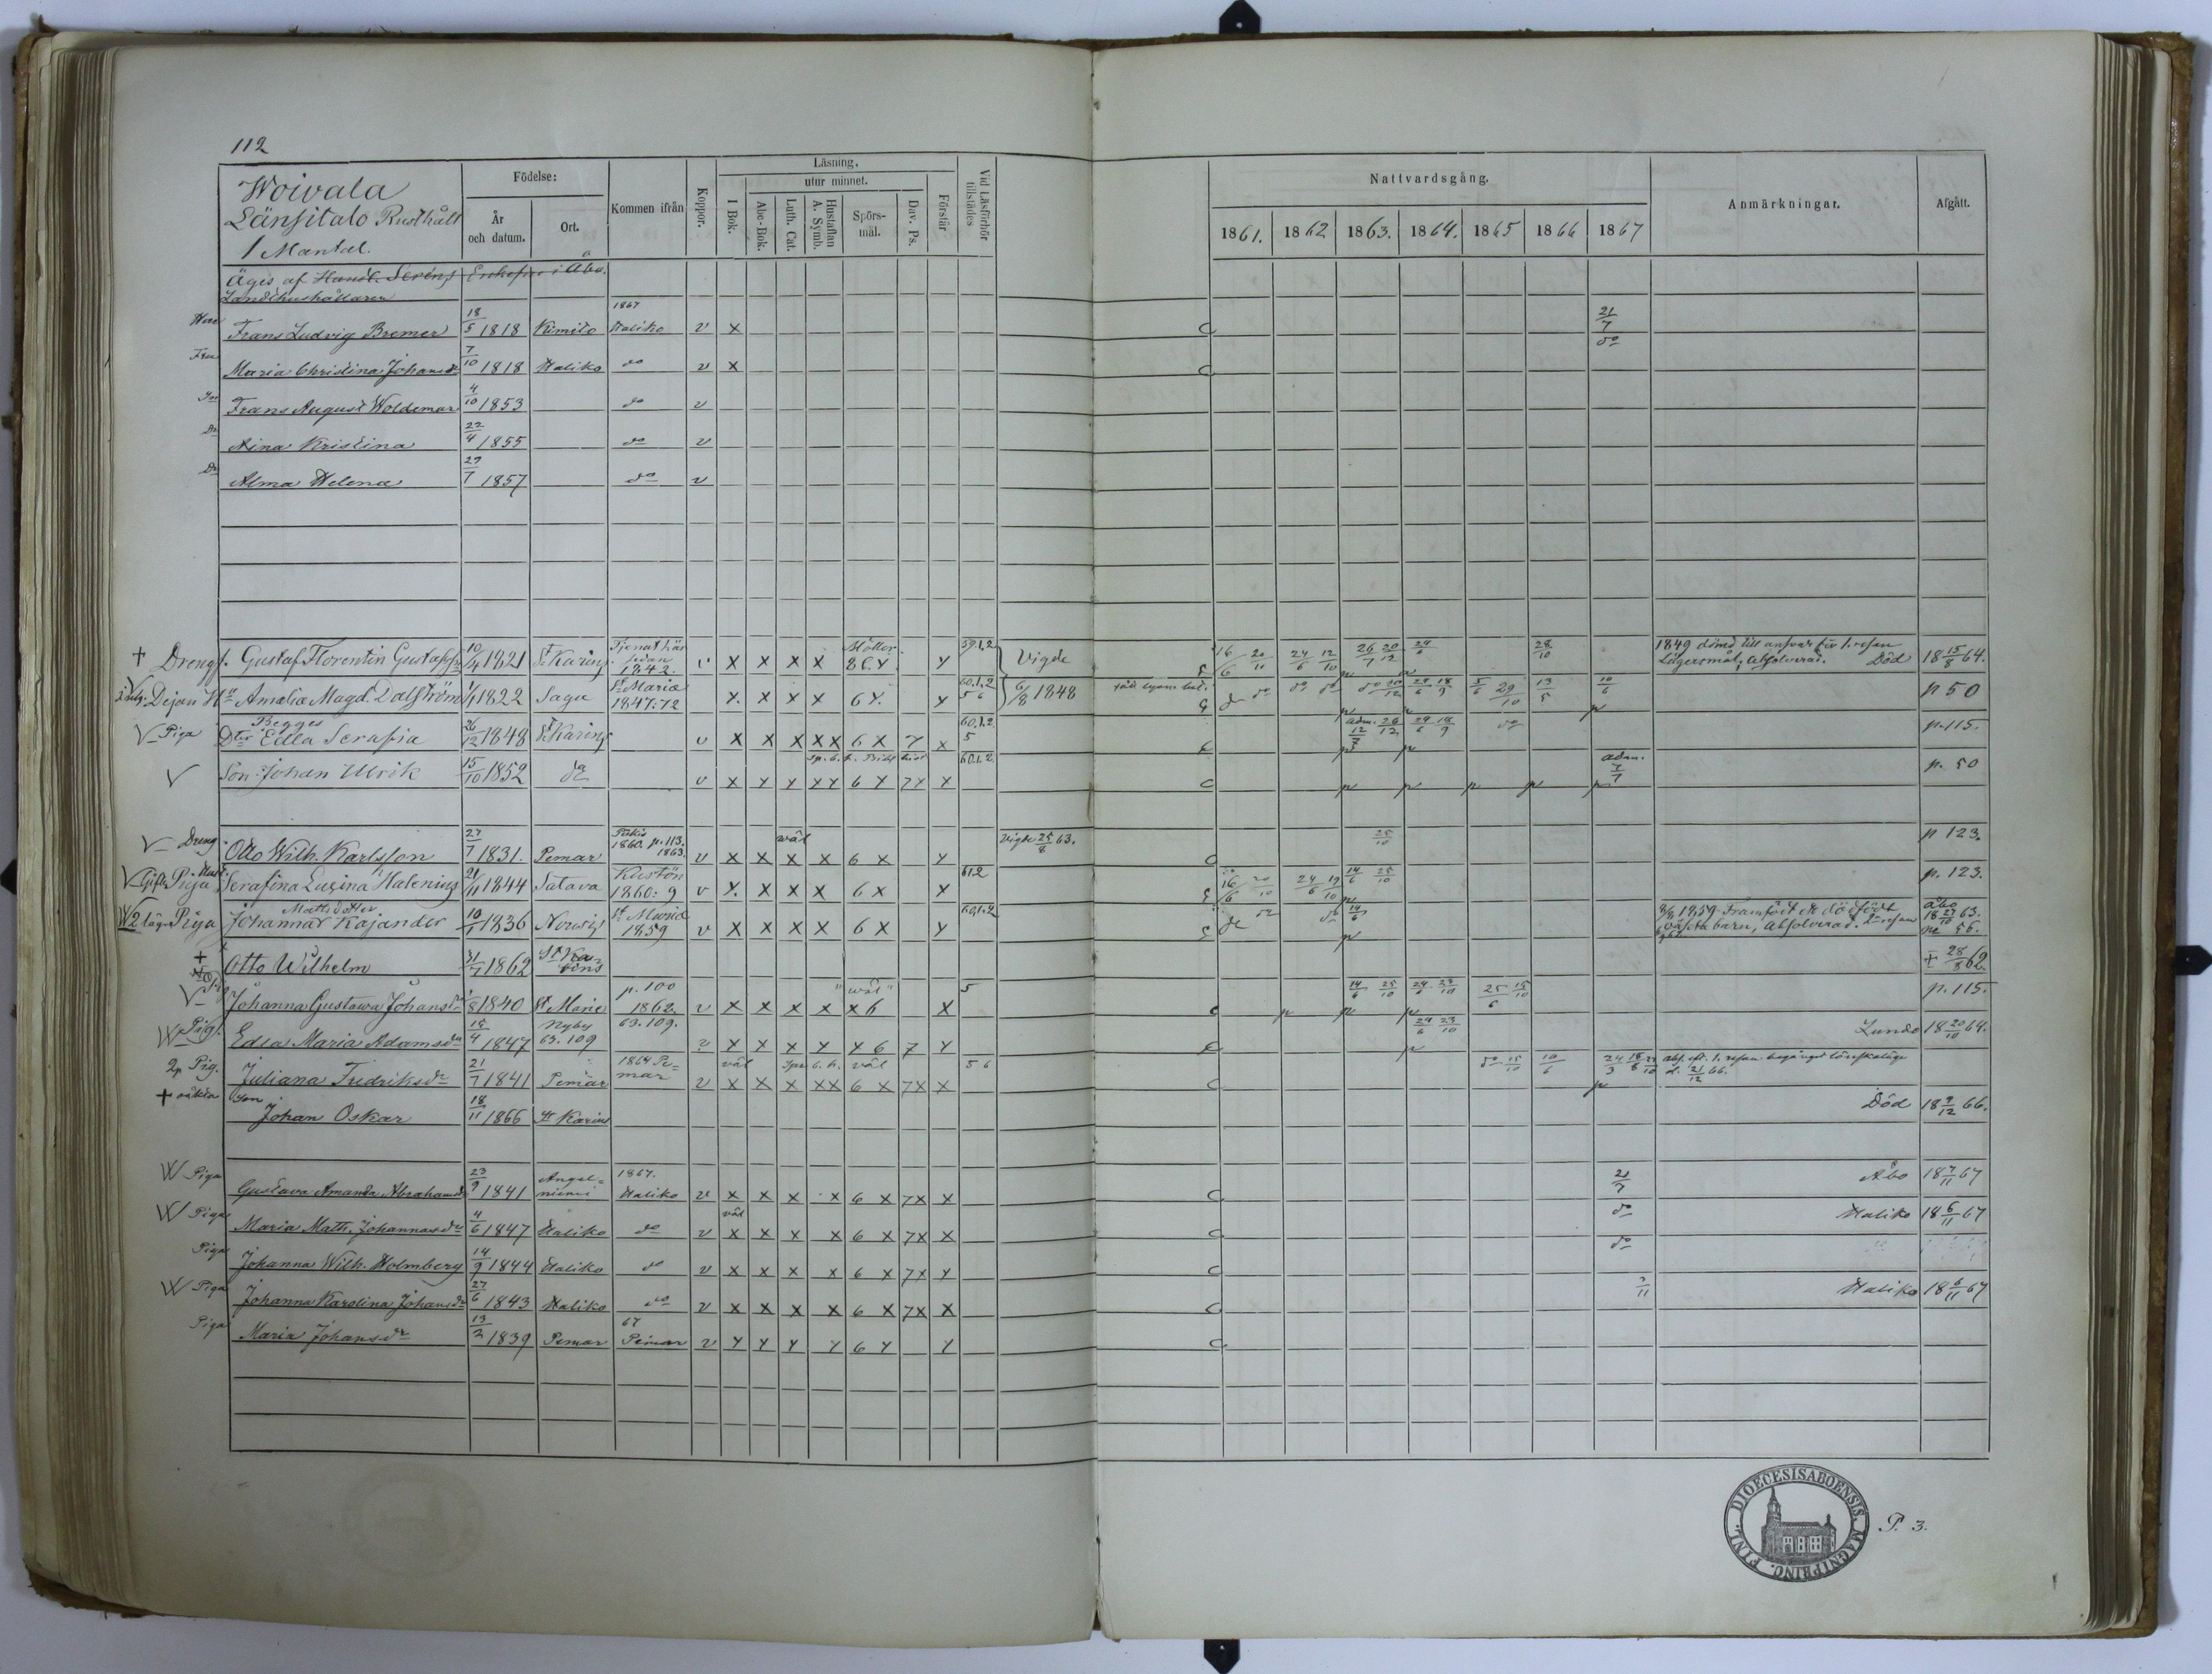 112
Woivala
Länsitalo Rusthåll
1 Mantal.
Födelse:
År och datum.
Ort.
Kommen ifrån
Koppor.
Läsning.
utur minnet.
I Bok.
Abc-Bok.
Luth. Cat.
Hustaflan A. Symb.
Spörs-mål.
Dav. Ps.
Förstår
Vid Läsförhör tillstädes
Nattvardsgång.
1861. 1862 1863. 1864. 1865 1866 1867
Anmärkningar.
Afgått.
Äges af Handl. Enkefru i Åbo.
Landthushållaren
Frans Ludvig Bremer 18/5 1818 Kimito 1867 Haliko v x 21/7
Fru Maria Christina Johansdr 7/10 1818 Haliko do v x do
Son Frans August Woldemar 4/10 1853 do v
Dr Aina Kristina 22/4 1855 do v
Dr Alma Helena 29/7 1857 do v
+ Drengf. Gustaf Florentin Gustafss 10/4 1821 St Karins Tjenat här sedan 1842. v x x x x 8 6 y y 59.1.2 Vigde 16/6 20/11 24/6 12/10 26/7 20/12 29/6 28/10 1849 dömd till ansvar för 1. resan Lägersmål, Absolverad. Död 18 15/8 64.
Dejan H Amalia Magd. Dalström 1/1 1822 Sagu St Marie 1847:72 x x x x 6 y. y 60.1.2 5 6 6/8 1848 do do do do 20/12 29/6 18/9 5/6 29/10 13/5 10/6 p 50
V Piga Begges Dtr Edla Serafia 26/12 1848 St Karins v x x x x x 6 x 7 x 60.1.2 5 adm. 12/7 26/12 29/6 18/9 do p. 115.
V Son Johan Ulrik 15/10 1852 do v x y y x y 6 y 7 y x 60.1.2. adm. 7/7 p. 50
V Dreng Otto Wilh. Karlsson 27/7 1831. Pemar 1860. p. 113. 1863. v x x wäl x x 6 x y Vigde 25/8 63. 25/10 p 123.
V Gift Piga Serafina Eugina Halenius 21/11 1844 Satava Kustön 1860: 9 v x. x x x 6 x y 61.2 16/6 20/10 24/6 19/10 14/6 25/10 p. 123.
Piga Matts dotter Johanna Kajander 10/1 1836 Nousis St Marie 1859 v x x x x 6 x y 60.1.2 do do do 14/6 1859 Framfödt ett dödfödt oäkta barn, Absolverad. resan Åbo 18 27/10 63. p 56.
+ Otto Wilhelm 31/7 1862 St Karins + 28/8 62
V Johanna Gustawa Johansdr 1840 St Marie p. 100 1862. v x x x x x 6 "wäl" x 5 14/6 25/10 24/6 23/10 25/6 15/10 p. 115.
W Pig. Edla Maria Adamsdr 18/4 1847 Nyby 63. 109 63. 109. v x x x y y 6 7 y 24/6 23/10 Lundo 18 20/10 64.
Pig. Juliana Fredriksdr 21/7 1841 Pemar 1864 Pemar v wäl x x x x x 6 x wäl 7 x x 5 6 do 15/10 10/6 24/3 18/8 27/10 abs. eft. 1. resan begånget lönskaläge d. 21/12 66.
+ oäkta Son Johan Oskar 18/11 1866 St Karins Död 18 9/12 66.
W Piga Gustava Amanda Abrahamsdr 23/9 1841 Angelniemi 1867. Haliko v x x x x 6 x 7 x x 21/7 Åbo 18 7/11 67
W Piga Maria Math. Johannesdr 4/6 1847 Haliko do v wäl x x x x 6 x 7 x x do Haliko 18 6/11 67
Piga Johanna Wilh. Holmberg 14/9 1844 Haliko do v x x x x 6 x 7 x y do
W Piga Johanna Karolina Johansdr 27/6 1843 Haliko do v x x x x 6 x 7 x x 3/11 Haliko 18 6/11 67
Piga Maria Johansdr 13/2 1839 Pemar 67 Pemar v y y y y 6 y y
FINL. DIOECESIS ABOENSIS. MAGNI PRINC.
P. 3.